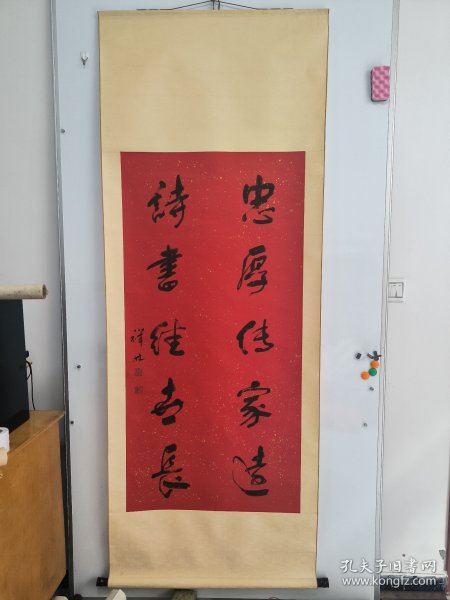 忠厚传家远
詩書继世長
祥林
孔夫子旧书网
www.kongfz.com